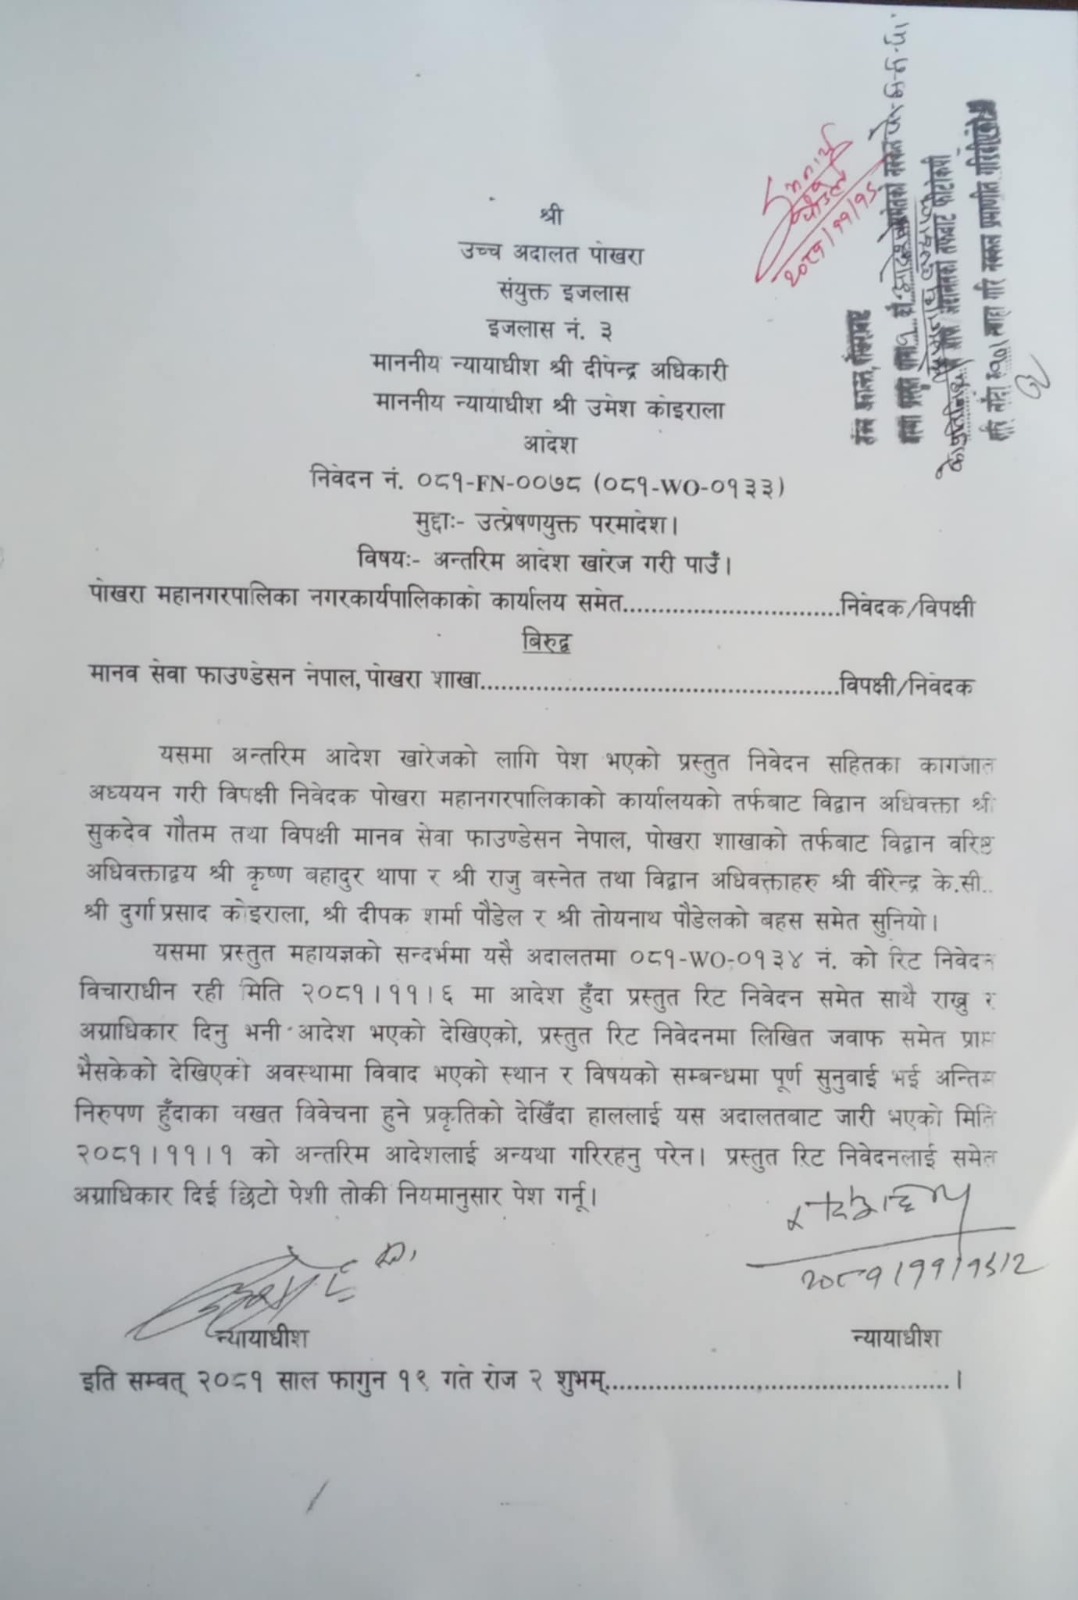 श्री
उच्च अदालत पोखरा
संयुक्त इजलास
इजलास नं. ३
माननीय न्यायाधीश श्री दीपेन्द्र अधिकारी
माननीय न्यायाधीश श्री उमेश कोइराला
आदेश
निवेदन नं. ०८१-FN-००७८ (०८१-WO-०१३३)
मुद्दाः- उत्प्रेषणयुक्त परमादेश।
विषयः- अन्तरिम आदेश खारेज गरी पाउँ।
पोखरा महानगरपालिका नगरकार्यपालिकाको कार्यालय समेत..............................निवेदक/विपक्षी
बिरुद्व
मानव सेवा फाउण्डेसन नेपाल, पोखरा शाखा..................................................विपक्षी/निवेदक
यसमा अन्तरिम आदेश खारेजको लागि पेश भएको प्रस्तुत निवेदन सहितका कागजात
अध्ययन गरी विपक्षी निवेदक पोखरा महानगरपालिकाको कार्यालयको तर्फबाट विद्वान अधिवक्ता श्री
सुकदेव गौतम तथा विपक्षी मानव सेवा फाउण्डेसन नेपाल, पोखरा शाखाको तर्फबाट विद्वान वरिष्ठ
अधिवक्ताद्वय श्री कृष्ण बहादुर थापा र श्री राजु बस्नेत तथा विद्वान अधिवक्ताहरु श्री वीरेन्द्र के.सी..
श्री दुर्गा प्रसाद कोइराला, श्री दीपक शर्मा पौडेल र श्री तोयनाथ पौडेलको बहस समेत सुनियो।
यसमा प्रस्तुत महायज्ञको सन्दर्भमा यसै अदालतमा ०८१-WO-०१३४ नं. को रिट निवेदन
विचाराधीन रही मिति २०८१।११।६ मा आदेश हुँदा प्रस्तुत रिट निवेदन समेत साथै राख्नु र
अग्राधिकार दिनु भनी आदेश भएको देखिएको, प्रस्तुत रिट निवेदनमा लिखित जवाफ समेत प्राप्त
भैसकेको देखिएको अवस्थामा विवाद भएको स्थान र विषयको सम्बन्धमा पूर्ण सुनुवाई भई अन्तिम
निरुपण हुँदाका वखत विवेचना हुने प्रकृतिको देखिँदा हाललाई यस अदालतबाट जारी भएको मिति
२०८१।११।१ को अन्तरिम आदेशलाई अन्यथा गरिरहनु परेन। प्रस्तुत रिट निवेदनलाई समेत
अग्राधिकार दिई छिटो पेशी तोकी नियमानुसार पेश गर्नू।
न्यायाधीश
न्यायाधीश
इति सम्वत् २०८१ साल फागुन १९ गते रोज २ शुभम्..................................................।